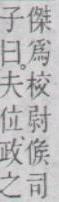 傑爲校尉候司
子曰。夫位、政之